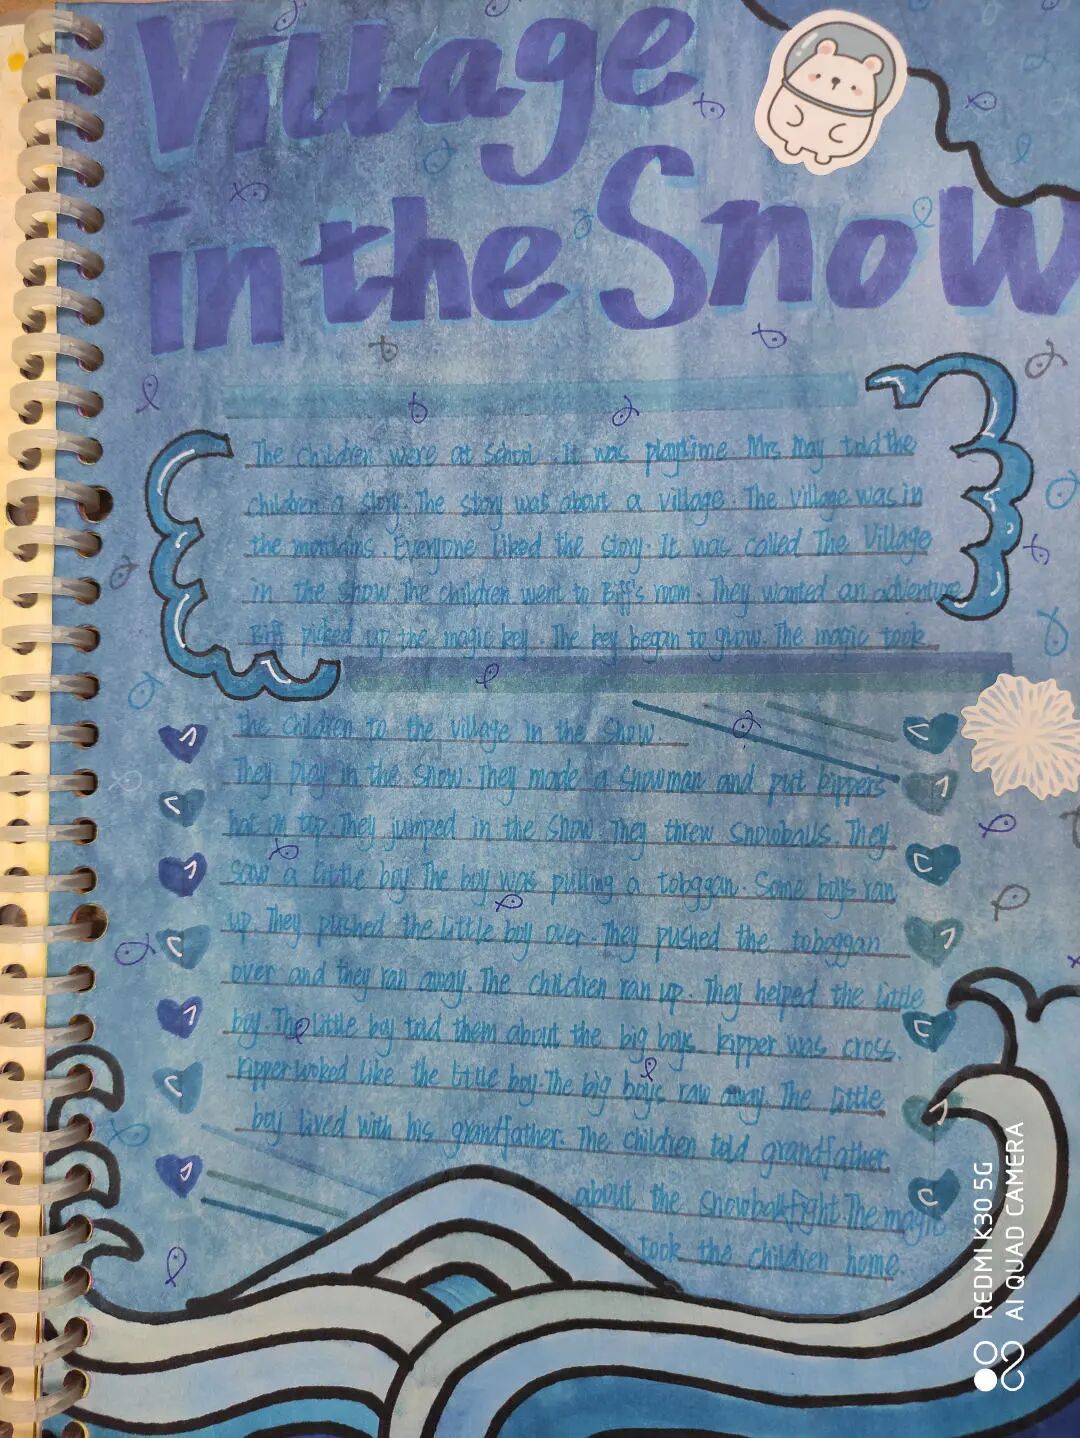 Village
in the Snow
The children were at school. It was playtime. Mrs May told the
children a story. The story was about a village. The village was in
the montains. Everyone liked the story. It was called The Village
in the snow. The children went to Biff's room. They wanted an adventure
Biff picked up the magic key. The key began to glow. The magic took
The children to the village in the snow.
They play in the snow. They made a snowman and put kippers
hat on top. They jumped in the snow. They threw snowballs. They
saw a little boy. The boy was pulling a tobggan. Some boys ran
up. They pushed the little boy over. They pushed the toboggan
over and they ran away. The children ran up. They helped the little
boy. The little boy told them about the big boys kipper was cross.
Kipper looked like the little boy. The big boys raw away. The little
boy lived with his grandfather. The children told grandfather
about the snowballfight. The magic
took the children home.
REDMI K30 5G
AI QUAD CAMERA